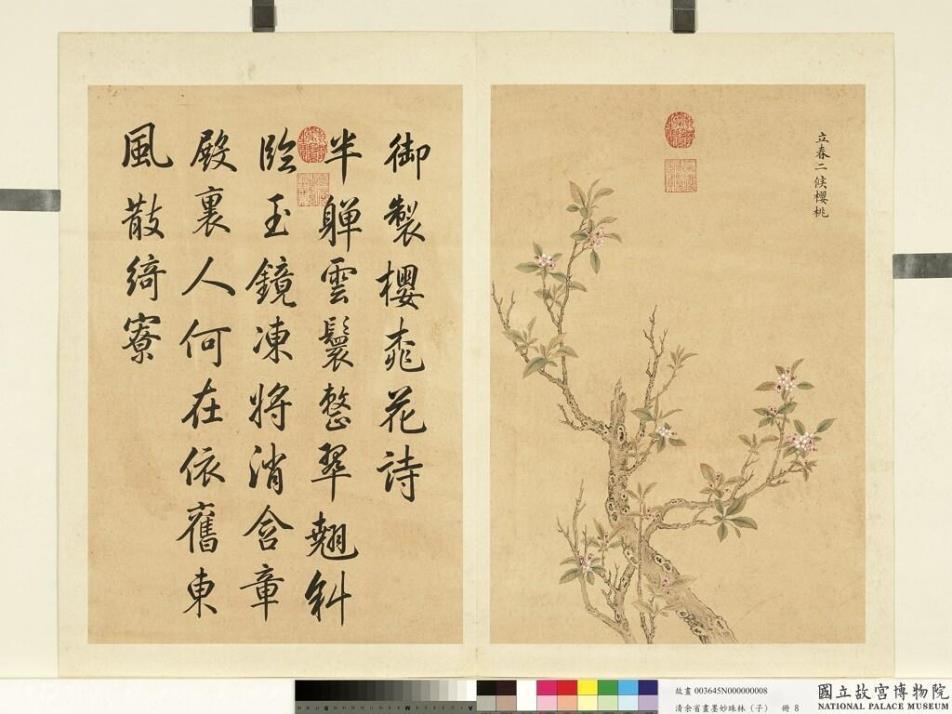 立春二候櫻桃
御製櫻桃花詩
半軃雲鬟整翠翹斜
臨玉鏡凍將消含章
殿裏人何在依舊東
風散綺寮
故畫 003645N000000008
清余省畫墨妙珠林（子） 冊 8
國立故宮博物院
NATIONAL PALACE MUSEUM